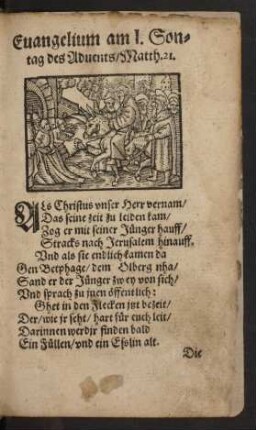 Euangelium am I. Son-
tag des Aduents/Matth.21.
ALs Christus vnser Herr vernam/
Das seine zeit zu leiden kam/
Zog er mit seiner Jünger hauff/
Stracks nach Jerusalem hinauff.
Vnd als sie endlich kamen da
Gen Betphage/dem Olberg nha/
Sand er der Jünger zwey von sich/
Vnd sprach zu jnen öffentlich:
Ghet in den Flecken jtzt bereit/
Der/wie jr seht/ hart für euch leit/
Darinnen werdjr finden bald
Ein Füllen/vnd ein Eßlin alt.
Die